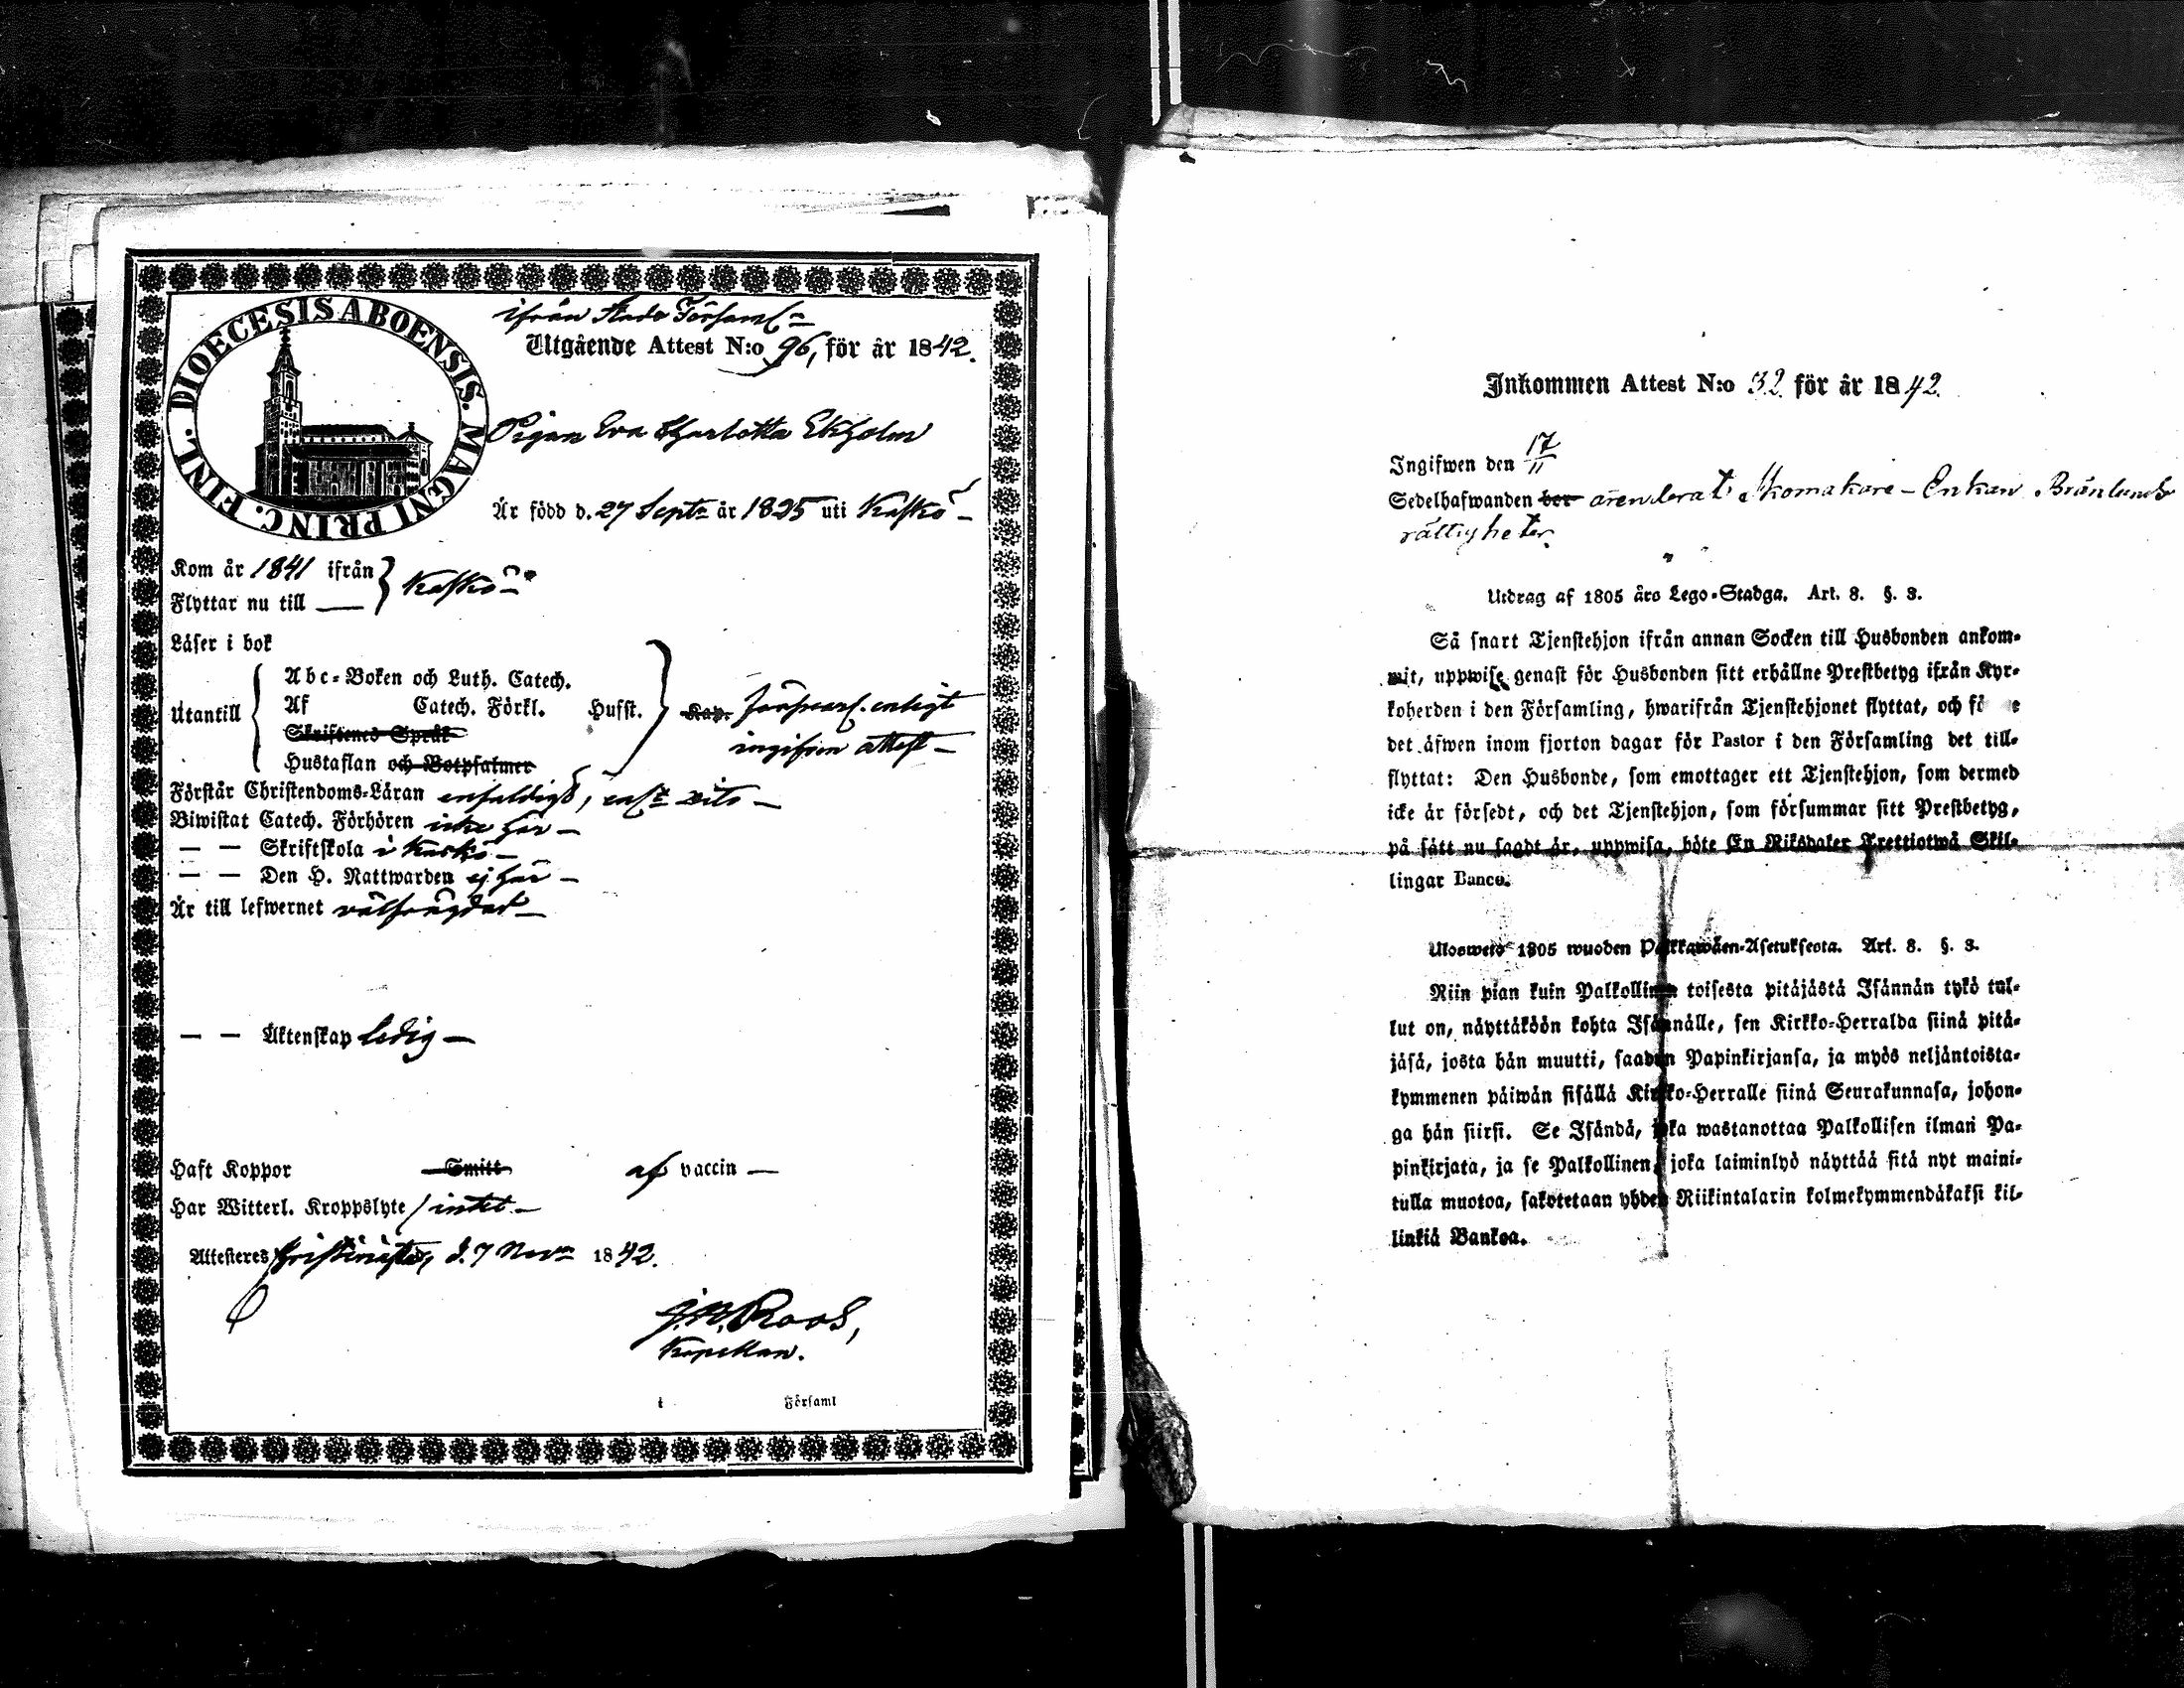 DIOECESIS ABOENSIS. MAGNI PRINC. FINL.
ifrån Stads Församl:n
Utgående Attest N:o 96, för år 1842.
Pigan Eva Charlotta Ekholm
Är född d. 27 Sept:r år 1825 uti Kaskö
Kom år 1841 ifrån } Kaskö
Flyttar nu till —
Läser i bok
Abc-Boken och Luth. Catech.
Utantill Af Catech. Förkl. Hufst. Kap. enligt
Skriftenes Språk
ingifven attest —
Hustaflan och Botpsalmer
Förstår Christendoms-Läran enfaldigt,
Biwistat Catech. Förhören icke här —
— — Skriftskola i Kaskö —
— — Den H. Nattwarden ej här —
Är till lefwernet välfrägdad —
— — Äktenskap ledig —
Haft Koppor Smitt af vaccin —
Har Witterl. Kroppslyte intet. —
Attesteres Christinæstad, d. 7 Nov:r 1842.
Roos,
Kapellan.
i Församl
Inkommen Attest N:o 32 för år 1842.
Ingifwen den 17/11
Sedelhafwanden ber arenderat Skomakare-Enkan Brönlunds
rättigheter.
Utdrag af 1805 års Lego-Stadga. Art. 8. §. 3.
Så snart Tjenstehjon ifrån annan Socken till Husbonden ankom-
mit, uppwise genast för Husbonden sitt erhållne Prestbetyg ifrån Kyr-
koherden i den Församling, hwarifrån Tjenstehjonet flyttat, och
det äfwen inom fjorton dagar för Pastor i den Församling det till-
flyttat: Den Husbonde, som emottager ett Tjenstehjon, som dermed
icke är försedt, och det Tjenstehjon, som försummar sitt Prestbetyg,
på sätt nu sagdt är, uppwisa, böte En Riksdaler Trettiotwå Skil-
lingar Banco.
Ulosweto 1805 wuoden Palkkawäen-Asetuksesta. Art. 8. §. 3.
Niin pian kuin Palkollinen toisesta pitäjästä Isännän tykö tul-
lut on, näyttäköön kohta Isännälle, sen Kirkko-Herralda siinä pitä-
jäsä, josta hän muutti, saadun Papinkirjansa, ja myös neljäntoista-
kymmenen päiwän sisällä Kirkko-Herralle siinä Seurakunnasa, johon-
ga hän siirsi. Se Isändä, joka wastanottaa Palkollisen ilman Pa-
pinkirjata, ja se Palkollinen, joka laiminlyö näyttää sitä nyt maini-
tulla muotoa, sakotetaan yhden Riikintalarin kolmekymmendäkaksi kil-
linkiä Bankoa.